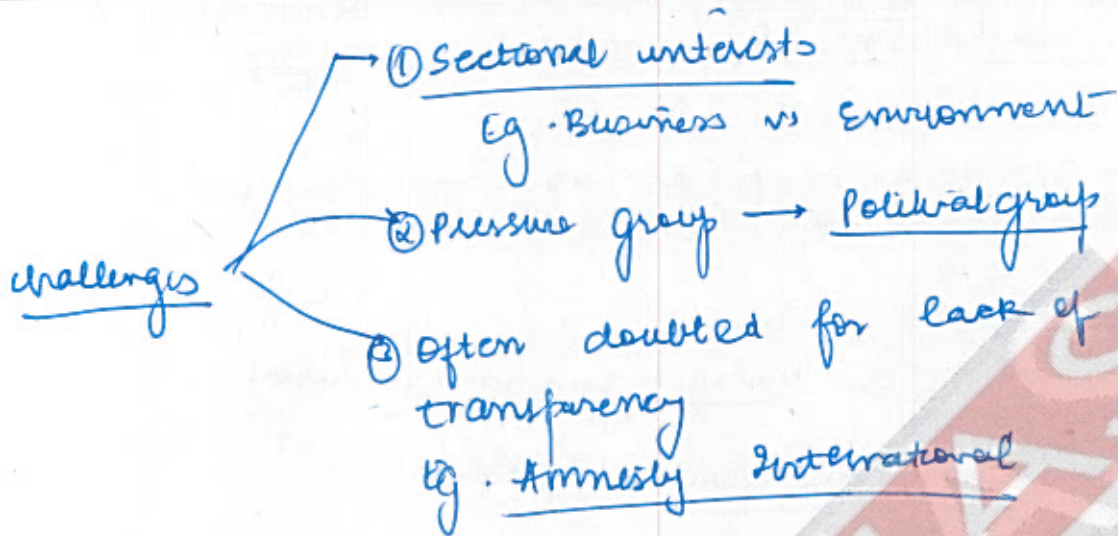 ① Sectional interests
Eg. Business vs Environment
② Pressure group → Political group
challenges
③ Often doubted for lack of
transparency
Eg. Amnesty International